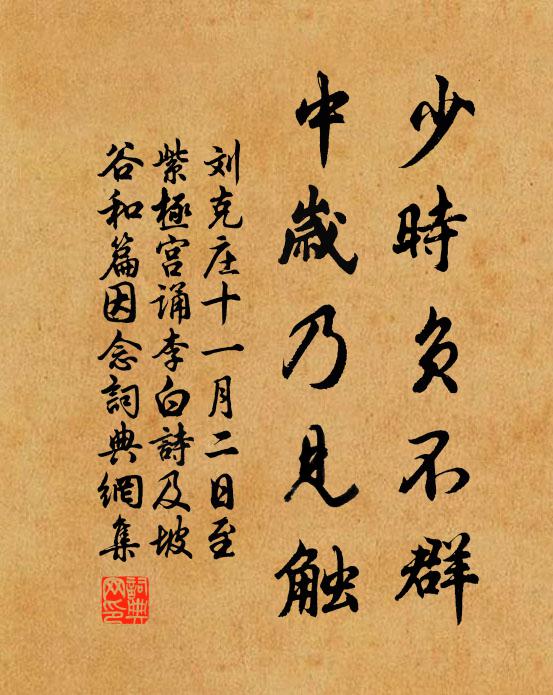 少時負不群
中歳乃見触
刘克庄十一月二日至
紫極宫诵李白詩及坡
谷和篇因念詞典網集
詞典
网印